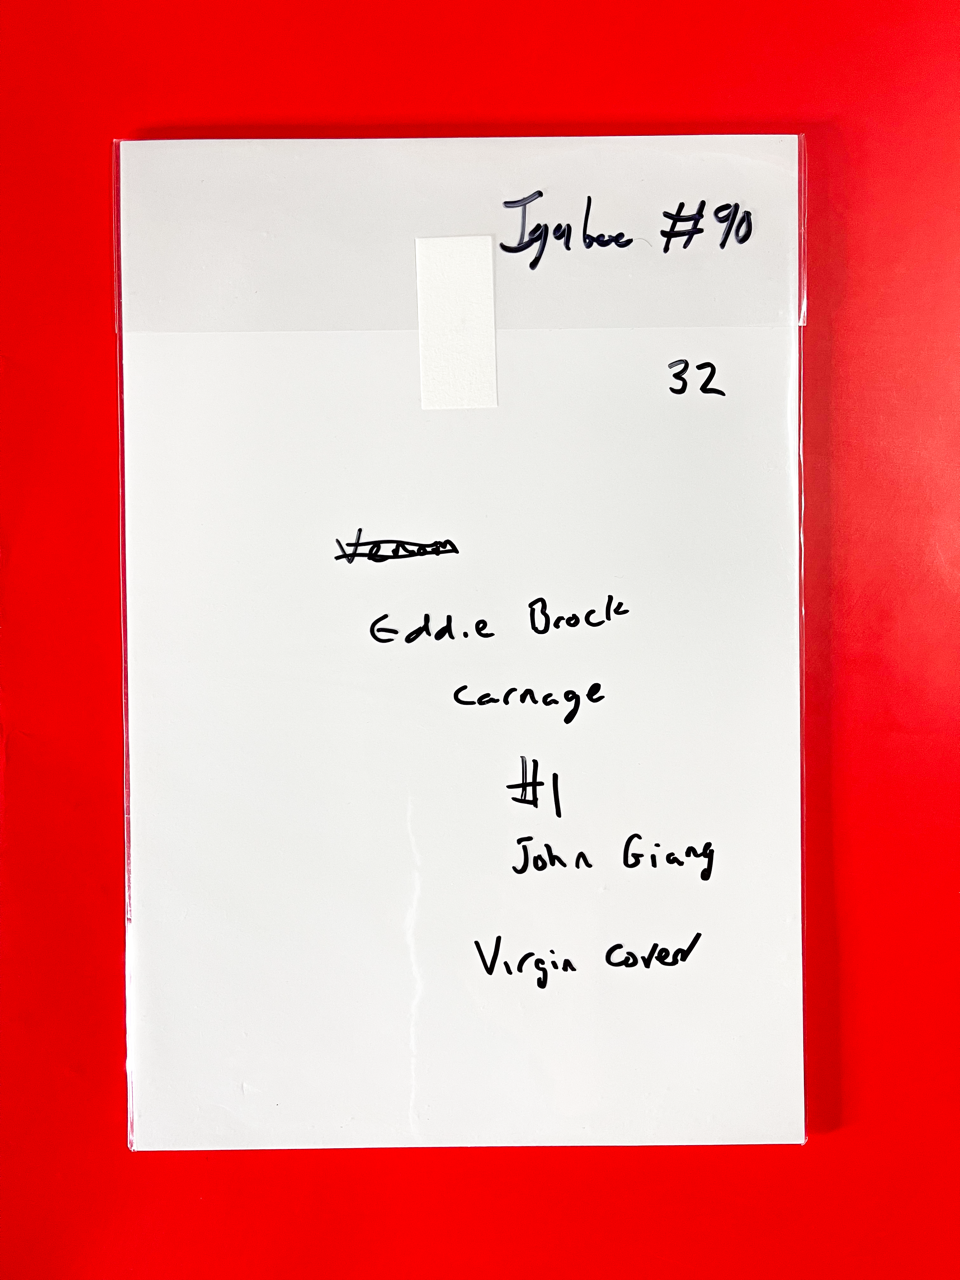 #90
32
Venom
Eddie Brock
Carnage
#1
John Giang
Virgin Cover